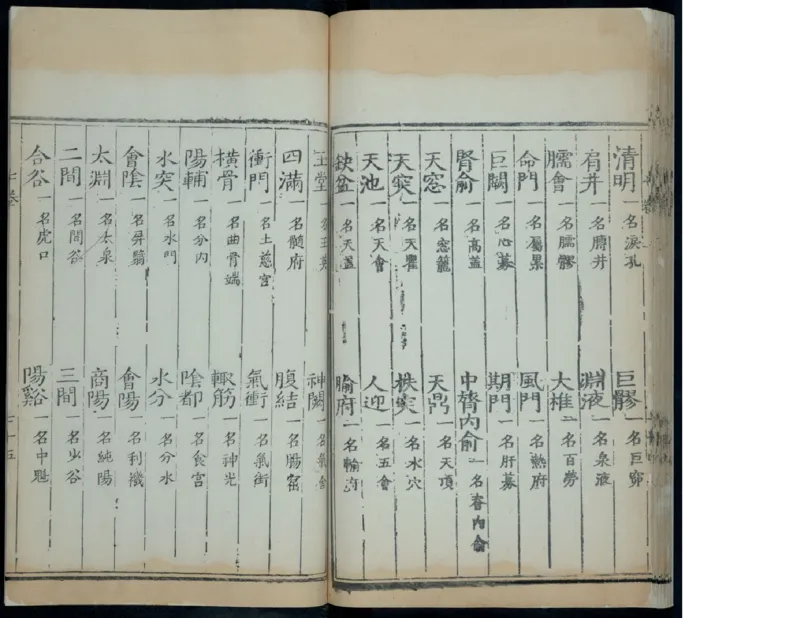 清明 一名淚孔 巨髎 一名巨窌
肩井 一名膊井 淵液 一名泉液
臑會 一名臑髎 大椎 一名百勞
命門 一名屬累 風門 一名熱府
巨闕 一名心募 期門 一名肝募
腎俞 一名高蓋 中膂內俞 一名脊內俞
天窓 一名窓籠 天鼎 一名天頂
天突 一名天瞿 扶突 一名水穴
天池 一名天會 人迎 一名五會
缺盆 一名天蓋 腧府 一名輸府
玉堂 一名玉英 神闕 一名氣舍
四滿 一名髓府 腹結 一名腸窟
衝門 一名上慈宮 氣衝 一名氣街
橫骨 一名曲骨端 輒筋 一名神光
陽輔 一名分內 陰都 一名食宮
水突 一名水門 水分 一名分水
會陰 一名屏翳 會陽 一名利機
太淵 一名太泉 商陽 一名純陽
二間 一名間谷 三間 一名少谷
合谷 一名虎口 陽谿 一名中魁
七卷